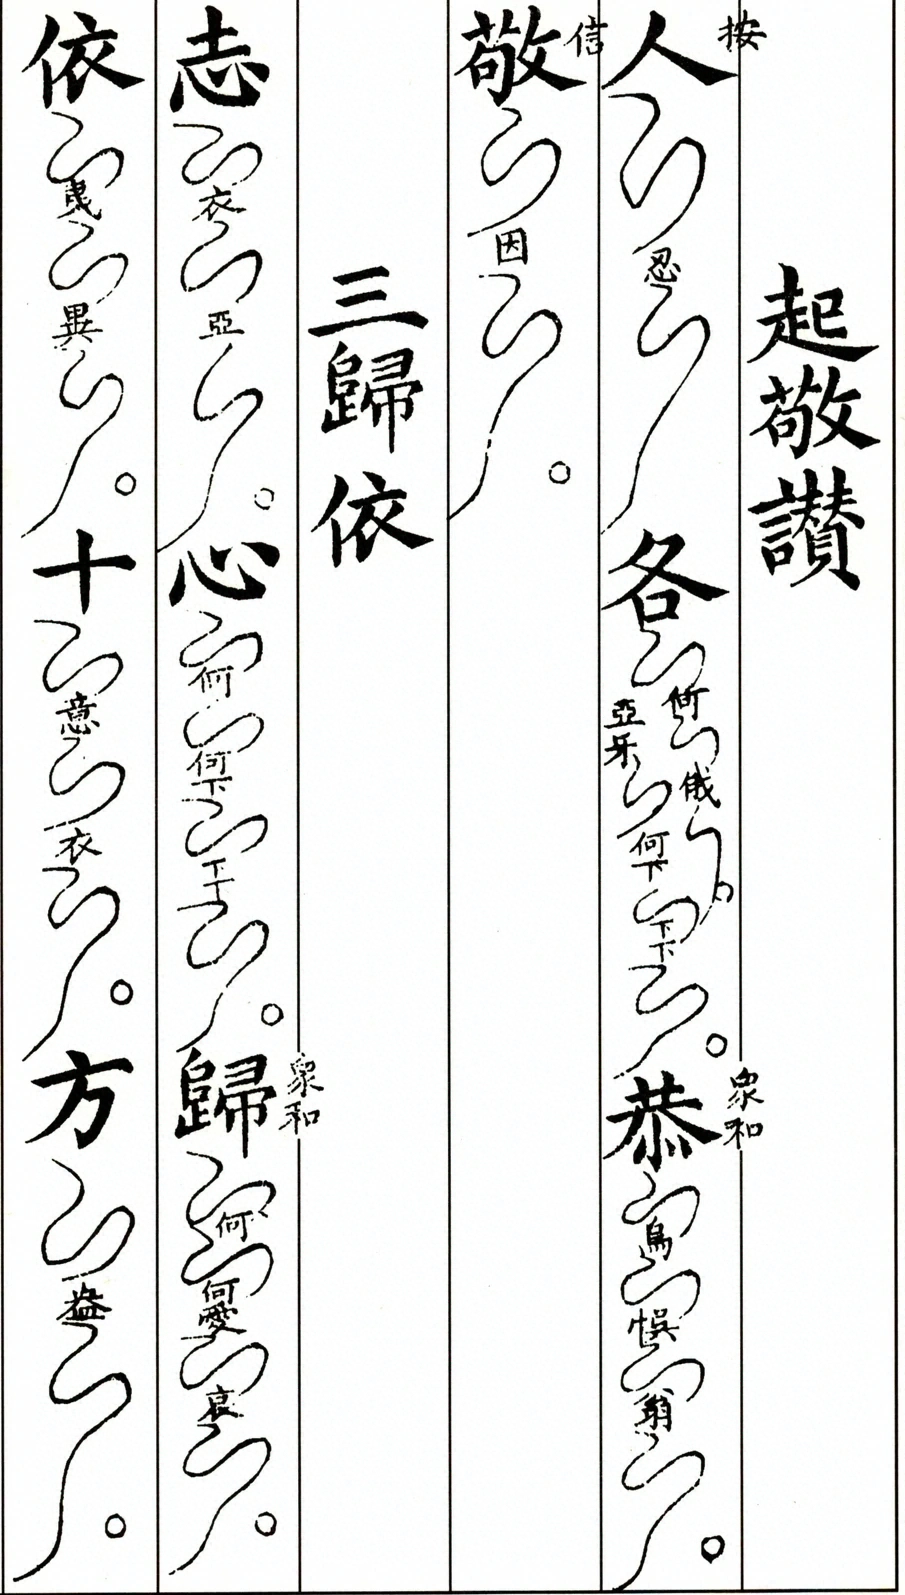 起敬讃
按 人 忍 各 何 俄 亞 牙 何 下 下 下 恭 衆和 烏 悞 翁
信 敬 因
三歸依
志 衣 亞 心 何 何 下 下 下 歸 衆和 何 何 愛 哀
依 曳 異 十 意 衣 方 益